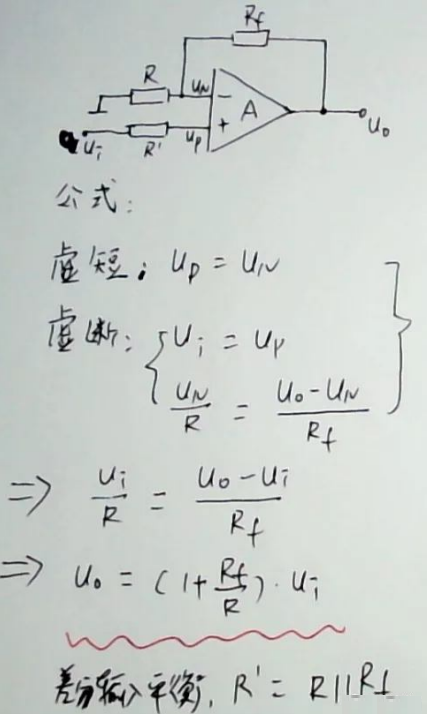 Rf
R
uN
-
A
+
ui
R'
up
uo
公式:
虚短: up = uN
虚断: { ui = up
uN/R = (uo-uN)/Rf
=> ui/R = (uo-ui)/Rf
=> uo = (1+Rf/R)·ui
差分输入平衡, R' = R||Rf